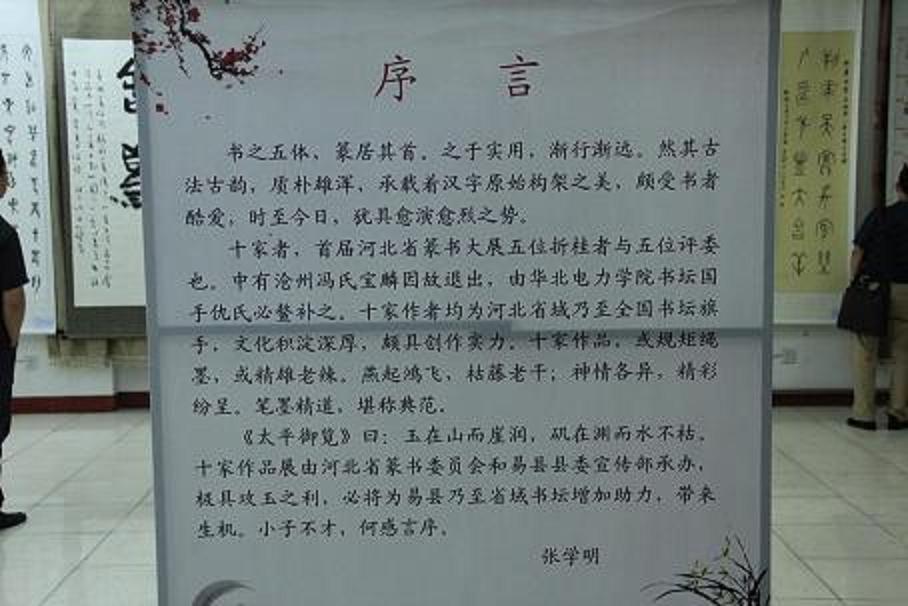 序 言
书之五体、篆居其首。之于实用，渐行渐远。然其古
法古韵，质朴雄浑，承载着汉字原始构架之美，颇受书者
酷爱，时至今日，犹具愈演愈烈之势。
十家者，首届河北省篆书大展五位折桂者与五位评委
也。中有沧州冯氏宝麟因故退出，由华北电力学院书坛国
手仇氏必鳌补之。十家作者均为河北省域乃至全国书坛旗
手，文化积淀深厚，颇具创作实力。十家作品，或规矩绳
墨，或精雄老辣。燕起鸿飞，枯藤老干；神情各异，精彩
纷呈。笔墨精道，堪称典范。
《太平御览》曰：玉在山而崖润，矶在渊而水不枯。
十家作品展由河北省篆书委员会和易县县委宣传部承办，
极具攻玉之利，必将为易县乃至省域书坛增加助力，带来
生机。小子不才，何惑言序。
张学明